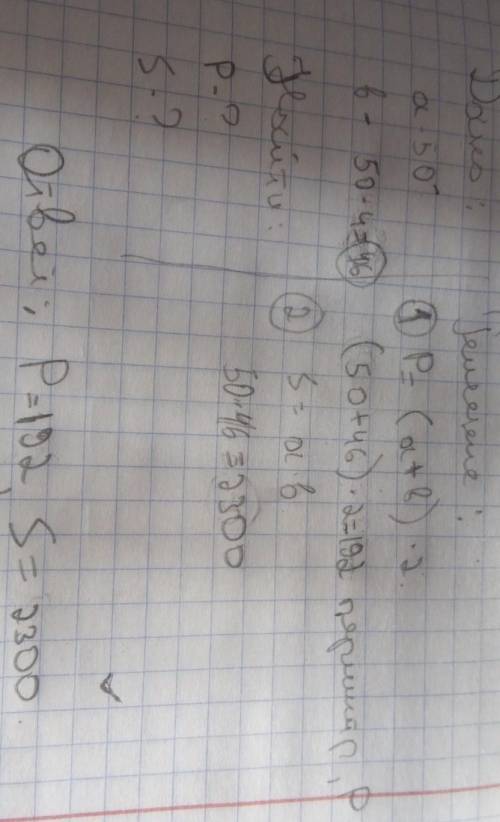 Дано:
a - 50
b - 50-4=46
Найти:
P - ?
S - ?
Решение:
① P = (a+b)·2.
(50+46)·2=192 периметр, P
② S = a·b
50·46=2300
Ответ: P=192, S=2300.